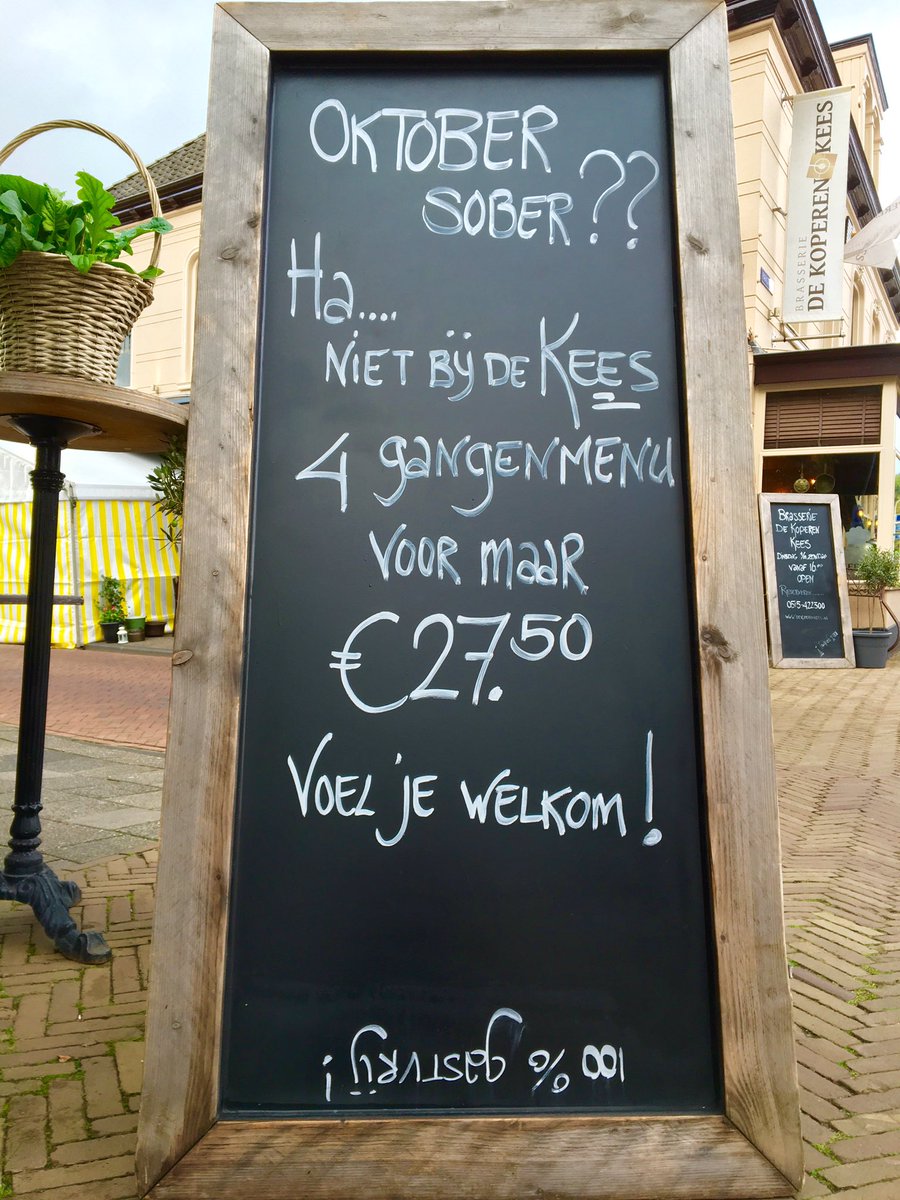 OKTOBER
SOBER??
Ha....
NIET BIJ DE KEES
4 GANGENMENU
VOOR MAAR
€27.50
VOEL JE WELKOM!
188 % GASTVRIJ!
BRASSERIE
DE KOPEREN KEES
BRASSERIE
DE KOPEREN
KEES
VANAF 16.00
OPEN
0515-422300